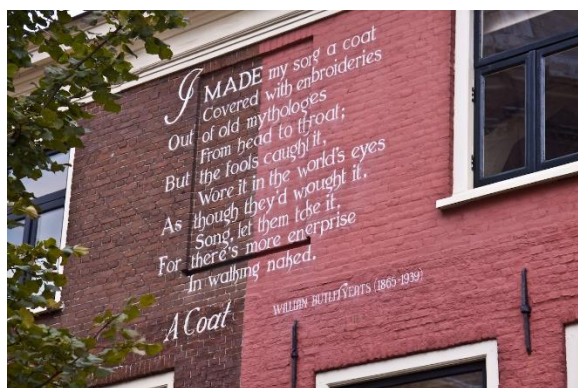 I MADE my sorg a coat
Covered with enbroideries
Out of old mythologes
From head to throat;
But the fools caught it,
Wore it in the world's eyes
As though they'd wrought it.
Song, let them take it,
For there's more enerprise
In walking naked.
A Coat
WILLIAN BUTLER YEATS (1865-1939)